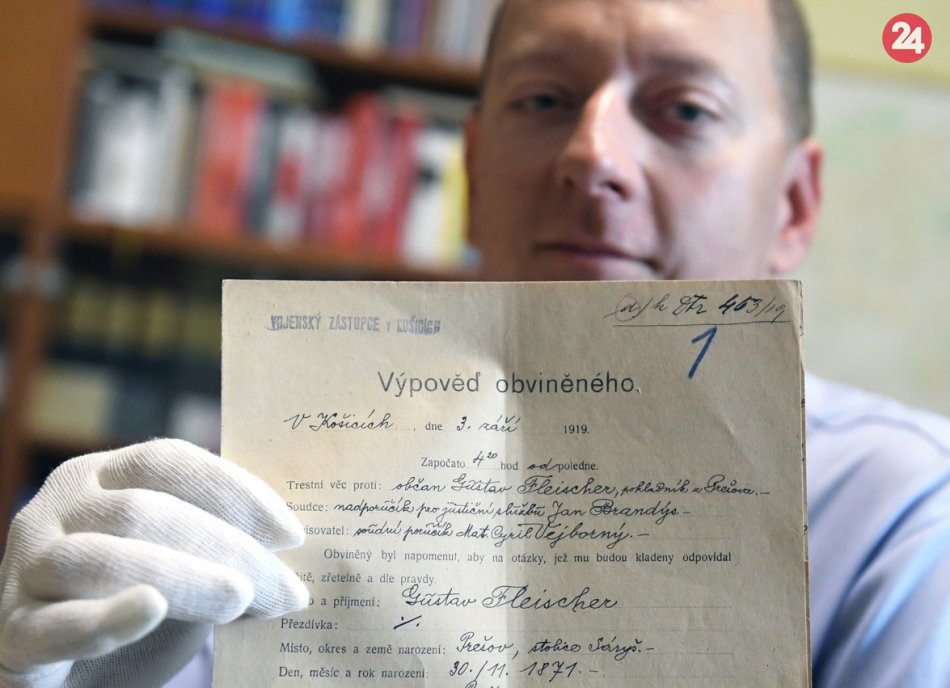 24
VOJENSKÝ ZÁSTUPCE v KOŠICÍCH
d/k Dtr 463/19
1
Výpověď obviněného.
V Košicích, dne 3. září 1919.
Započato 4²⁰ hod odpoledne.
Trestní věc proti: občan Gustav Fleischer, pokladník z Prešova.–
Soudce: nadporučík pro justiční službu Jan Brandýs.–
isovatel: soudní poručík Mat. Cyril Vejborný.–
Obviněný byl napomenut, aby na otázky, jež mu budou kladeny odpovídal
čitě, zřetelně a dle pravdy.
o a příjmení: Gustav Fleischer
Přezdívka: ./.
Místo, okres a země narození: Prešov, stolice Šáryš.–
Den, měsíc a rok narození: 30./11. 1871.–